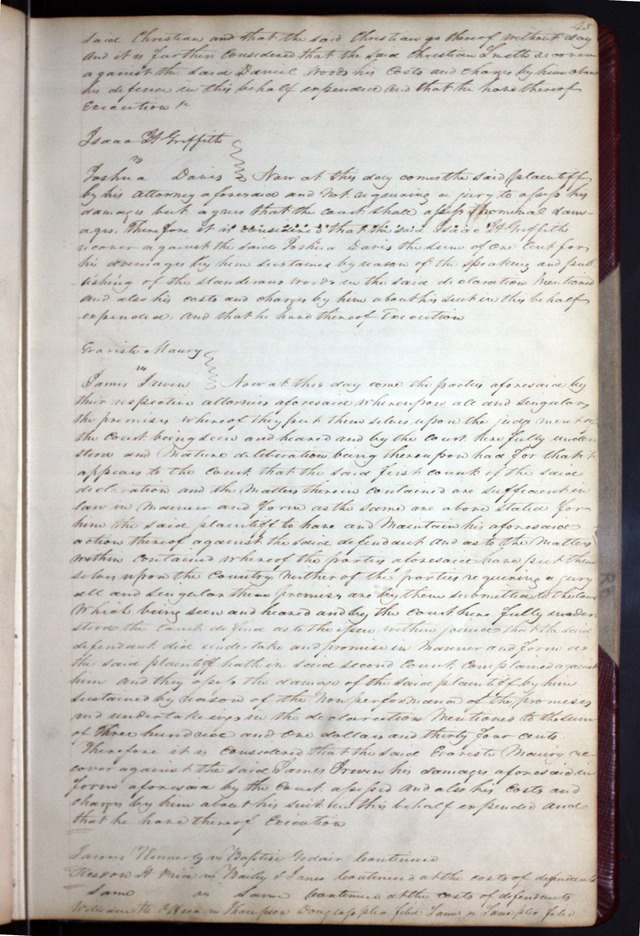 45
said Christian and that the said Christian go thereof without day
and it is further considered that the said Christian Smith recover
against the said Daniel Woods his costs and charges by him about
his defence in this behalf expended and that he have thereof
Execution &c
Isaac H Griffith
vs
Joshua Davis Now at this day comes the said plaintiff
by his attorney aforesaid and not requiring a jury to assess his
damages but agrees that the court shall assess nominal dam-
ages. Therefore it is considered that the said Isaac H Griffith
recover against the said Joshua Davis the sum of One Cent for
his damages by him sustained by reason of the speaking and pub-
lishing of the slanderous words in the said declaration mentioned
and also his costs and charges by him about his suit in this behalf
expended and that he have thereof Execution
Evariste Maury
vs
James Irwin Now at this day come the parties aforesaid by
their respective attornies aforesaid whereupon all and singular
the premises whereof they put themselves upon the judgment of
the court being seen and heard and by the court here fully under
stood and Mature deliberation being thereupon had For that it
appears to the Court that the said first count of the said
declaration and the Matters therein contained are sufficient in
law in Manner and form as the same are above stated for
him the said plaintiff to have and Maintain his aforesaid
action thereof against the said defendant and as to the Matters
within contained whereof the parties aforesaid have put them
selves upon the Country Neither of the parties requiring a jury
all and singular these premises are by them submitted to the Court
Which being seen and heard and by the court here fully under
stood the Court do find as to the issue within joined that the said
defendant did undertake and promise in Manner and form as
the said plaintiff hath in said second Count complained against
him and they assess the damage of the said plaintiff by him
sustained by reason of the Non performance of the promises
and undertakings in the declaration Mentioned to the sum
of three hundred and One dollars and thirty four cents
Therefore it is Considered that the said Evariste Maury re-
cover against the said James Irwin his damages aforesaid in
form aforesaid by the Court assessed and also his costs and
charges by him about his suit in this behalf expended and
that he have thereof Execution
James Kennerly vs Baptiste continued
H Price vs Baily & Jones continued at the costs of defendants
Same vs Same continued at the costs of defendants
William vs Thompson Douglass plea filed Same vs Same plea filed